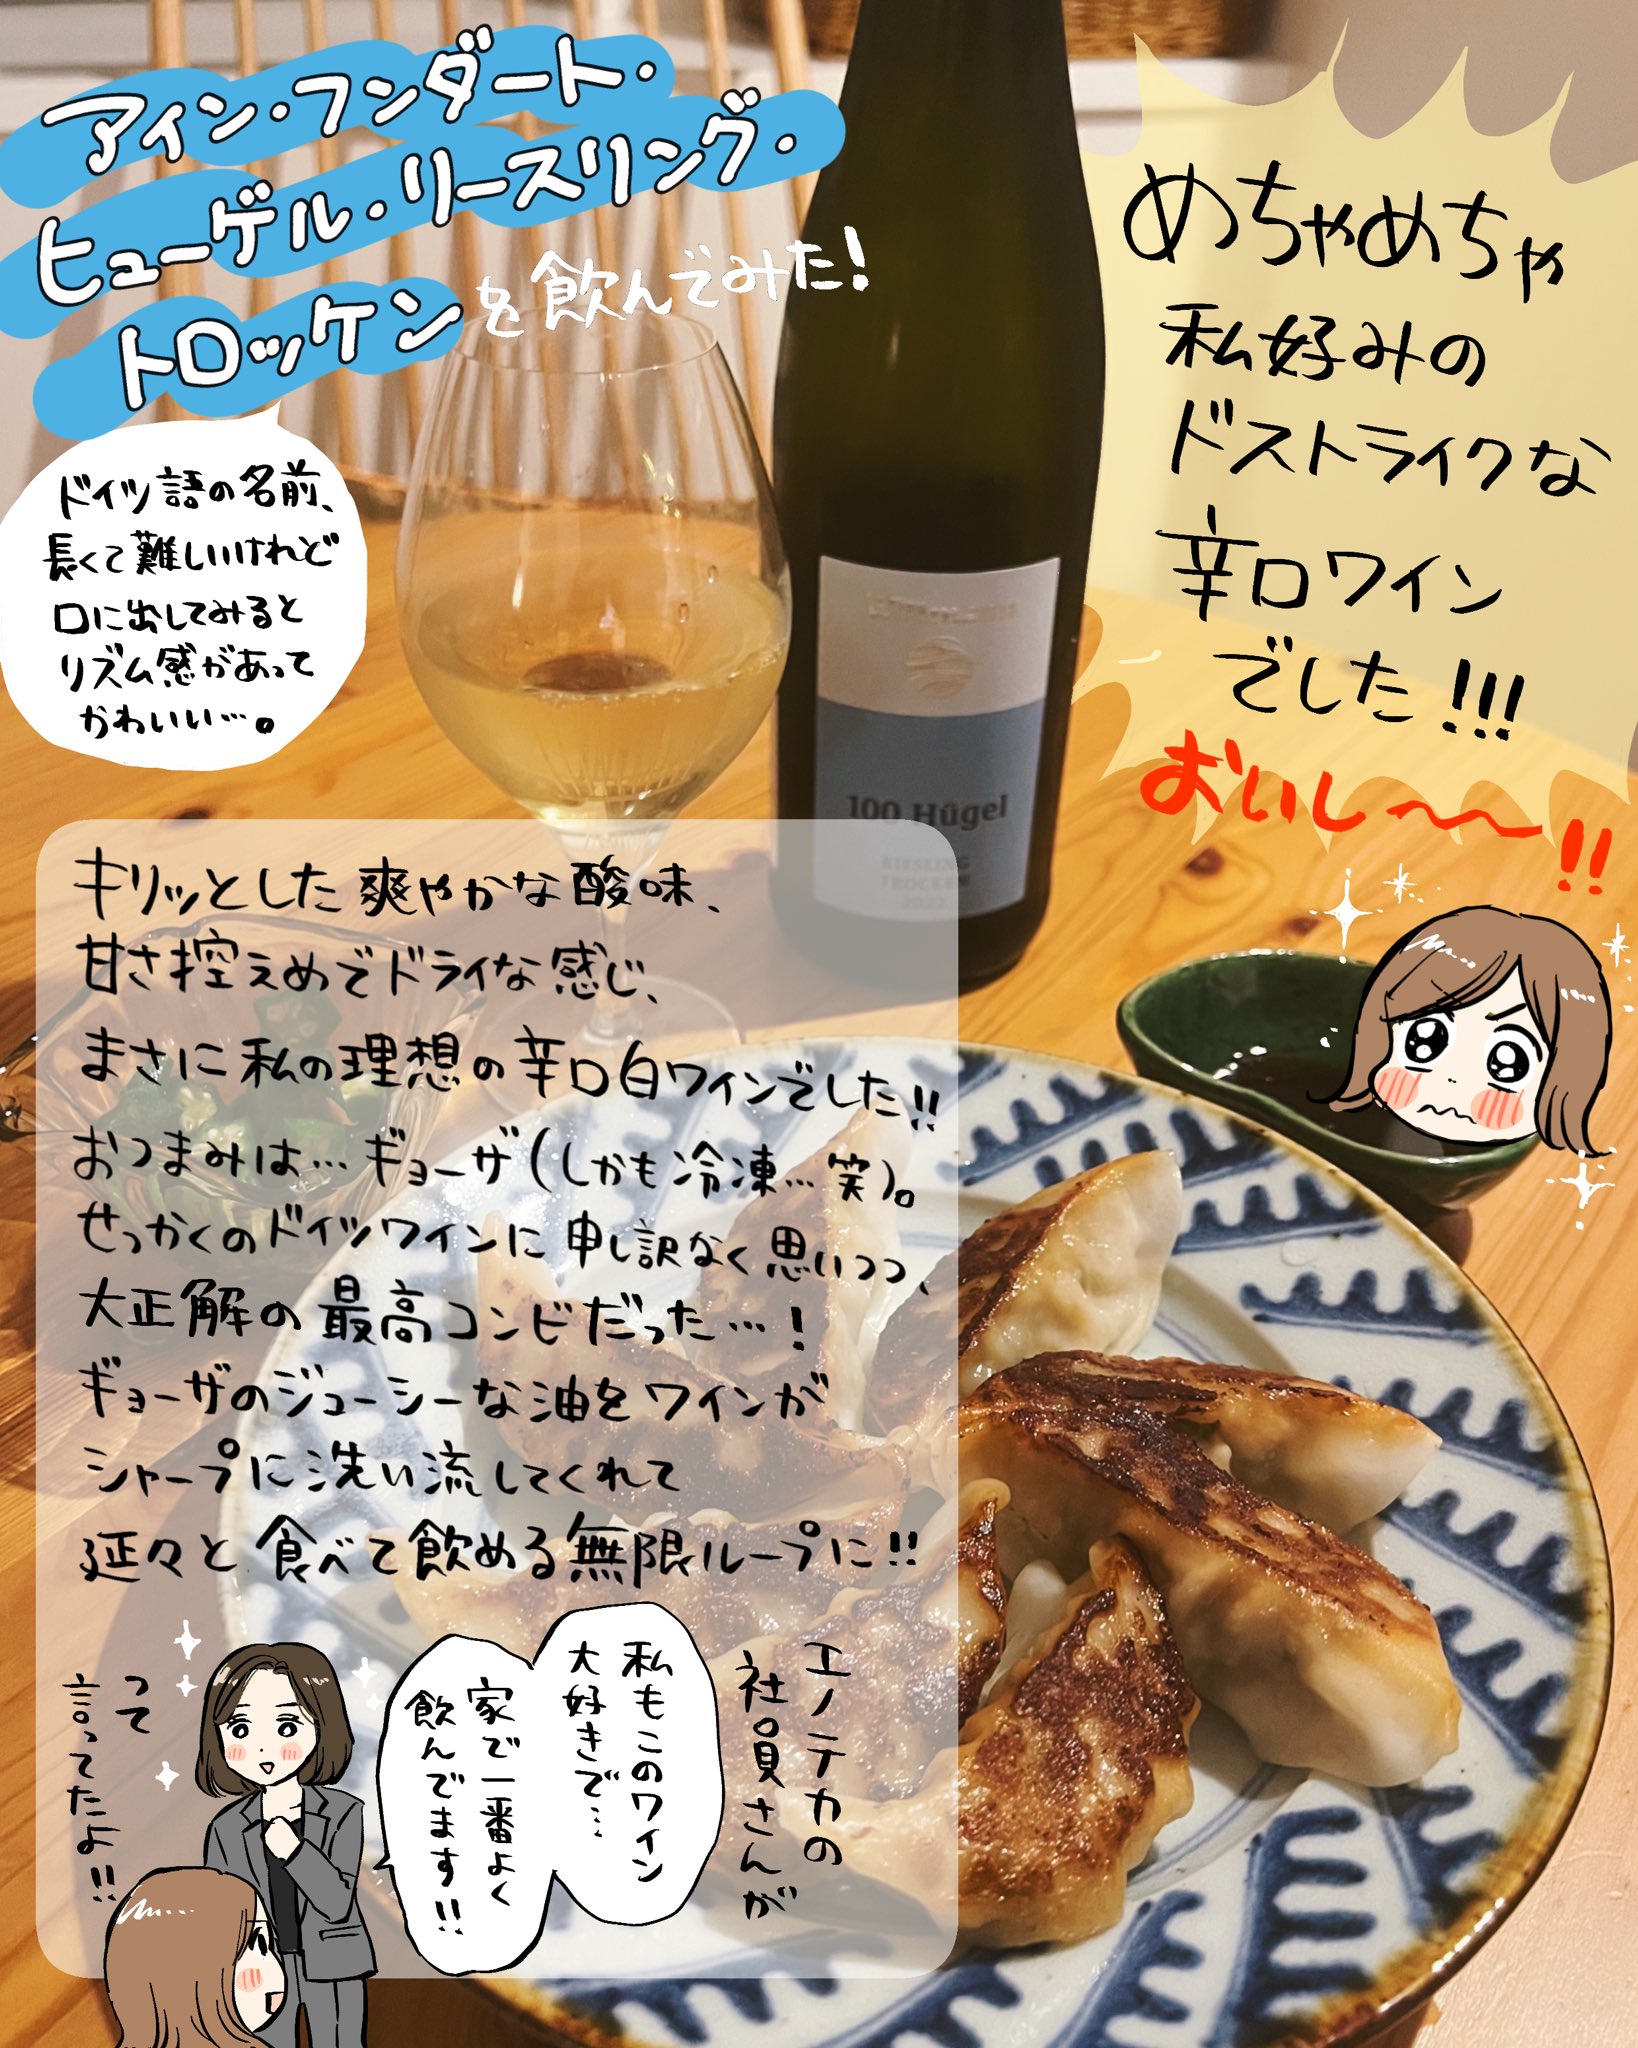 アイン・フンダート・
ヒューゲル・リースリング・
トロッケンを飲んでみた！
ドイツ語の名前、
長くて難しいけれど
口に出してみると
リズム感があって
かわいい…。
めちゃめちゃ
私好みの
ドストライクな
辛口ワイン
でした!!!
おいし〜〜!!
100 Hügel
RIESLING
TROCKEN
2022
キリッとした爽やかな酸味、
甘さ控えめでドライな感じ、
まさに私の理想の辛口白ワインでした!!
おつまみは…ギョーザ(しかも冷凍…笑)。
せっかくのドイツワインに申し訳なく思いつつ、
大正解の最高コンビだった…！
ギョーザのジューシーな油をワインが
シャープに洗い流してくれて
延々と食べて飲める無限ループに!!
エノテカの
社員さんが
私もこのワイン
大好きで…
家で一番よく
飲んでます!!
って
言ってたよ!!